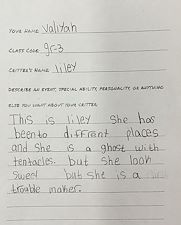 YOUR NAME: Valiyah
CLASS CODE: gc-3
CRITTER'S NAME: liley
DESCRIBE AN EVENT, SPECIAL ABILITY, PERSONALITY, OR ANYTHING
ELSE YOU WANT ABOUT YOUR CRITTER:
This is liley she has
been to diffrent places
and she is a ghost with
tentacles. but she look
sweet but she is a
trouble maker.